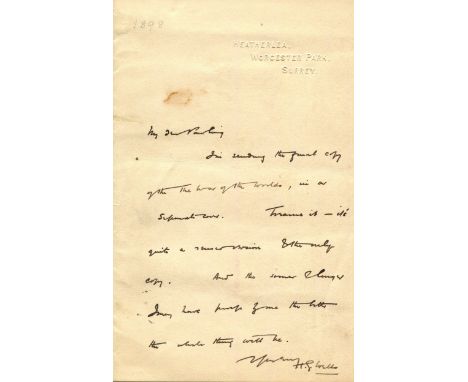 1898
HEATHERLEA,
WORCESTER PARK,
SURREY.
My dear
I'm sending the final copy
of the The War of the Worlds, in a
separate cover. it – it's
quite a version & the only
copy. And the sooner & longer
I may have proofs from the better
the whole thing will be.
H.G. Wells